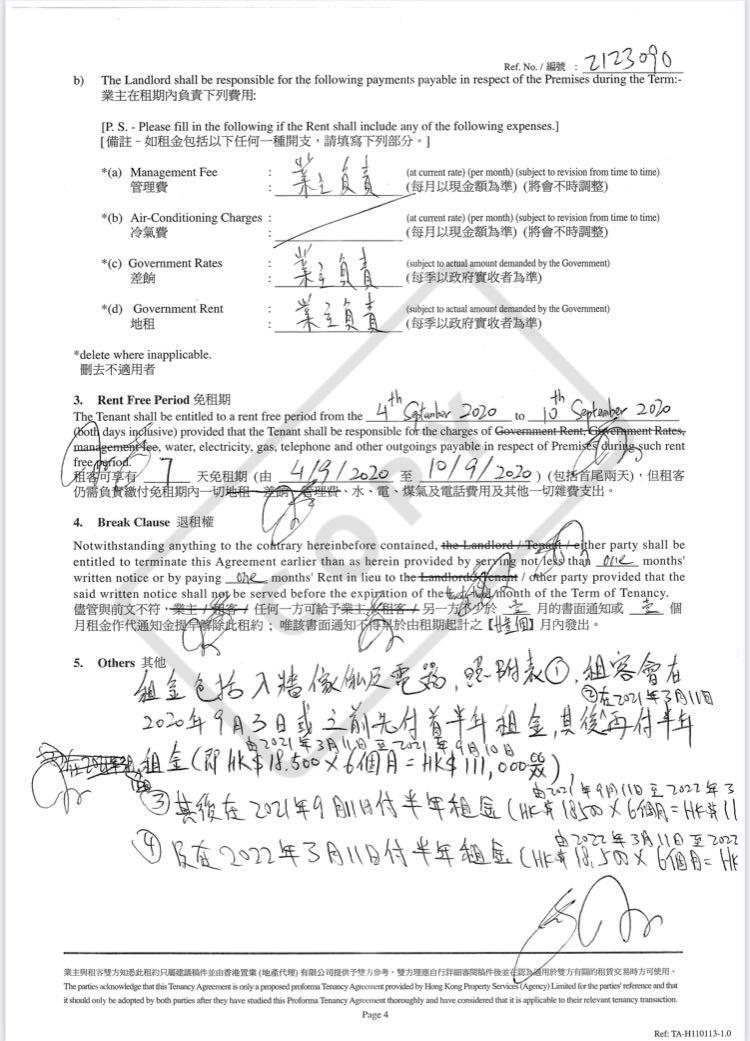 Ref. No. / 編號 : 2123090
b) The Landlord shall be responsible for the following payments payable in respect of the Premises during the Term:-
業主在租期內負責下列費用:
[P. S. - Please fill in the following if the Rent shall include any of the following expenses.]
[備註 - 如租金包括以下任何一種開支，請填寫下列部分。]
*(a) Management Fee : 業主負責 (at current rate) (per month) (subject to revision from time to time)
管理費 : (每月以現金額為準) (將會不時調整)
*(b) Air-Conditioning Charges : (at current rate) (per month) (subject to revision from time to time)
冷氣費 : (每月以現金額為準) (將會不時調整)
*(c) Government Rates : 業主負責 (subject to actual amount demanded by the Government)
差餉 : (每季以政府實收者為準)
*(d) Government Rent : 業主負責 (subject to actual amount demanded by the Government)
地租 : (每季以政府實收者為準)
*delete where inapplicable.
刪去不適用者
3. Rent Free Period 免租期
The Tenant shall be entitled to a rent free period from the 4th September 2020 to 10th September 2020
(both days inclusive) provided that the Tenant shall be responsible for the charges of Government Rent, Government Rates,
management fee, water, electricity, gas, telephone and other outgoings payable in respect of Premises during such rent
free period.
租客可享有 7 天免租期 (由 4/9/2020 至 10/9/2020) (包括首尾兩天)，但租客
仍需負責繳付免租期內一切地租、差餉、管理費、水、電、煤氣及電話費用及其他一切雜費支出。
4. Break Clause 退租權
Notwithstanding anything to the contrary hereinbefore contained, the Landlord / Tenant / either party shall be
entitled to terminate this Agreement earlier than as herein provided by serving not less than one months'
written notice or by paying one months' Rent in lieu to the Landlord / Tenant / other party provided that the
said written notice shall not be served before the expiration of the month of the Term of Tenancy.
儘管與前文不符，業主 / 租客 / 任何一方可給予業主 / 租客 / 另一方不少於 壹 月的書面通知或 壹 個
月租金作代通知金提早解除此租約；唯該書面通知不得早於由租期起計之【個】月內發出。
5. Others 其他
租金包括入牆傢俬及電器，照附表①，租客會在
②在2021年3月11日
2020年9月3日或之前先付首半年租金，其後再付半年
由2021年3月11日至2021年9月10日
租金(即HK$18,500×6個月=HK$111,000)
由2021年9月11日至2022年3
③其後在2021年9月11日付半年租金(HK$18,500×6個月=HK$11
由2022年3月11日至2022
④及在2022年3月11日付半年租金(HK$18,500×6個月=HK
業主與租客雙方知悉此租約只屬建議稿件並由香港置業 (地產代理) 有限公司提供予雙方參考。雙方理應自行詳細審閱稿件後並在認為適用於雙方有關的租賃交易時方可使用。
The parties acknowledge that this Tenancy Agreement is only a proposed proforma Tenancy Agreement provided by Hong Kong Property Services (Agency) Limited for the parties' reference and that
it should only be adopted by both parties after they have studied this Proforma Tenancy Agreement thoroughly and have considered that it is applicable to their relevant tenancy transaction.
Page 4
Ref: TA-H110113-1.0
COPY